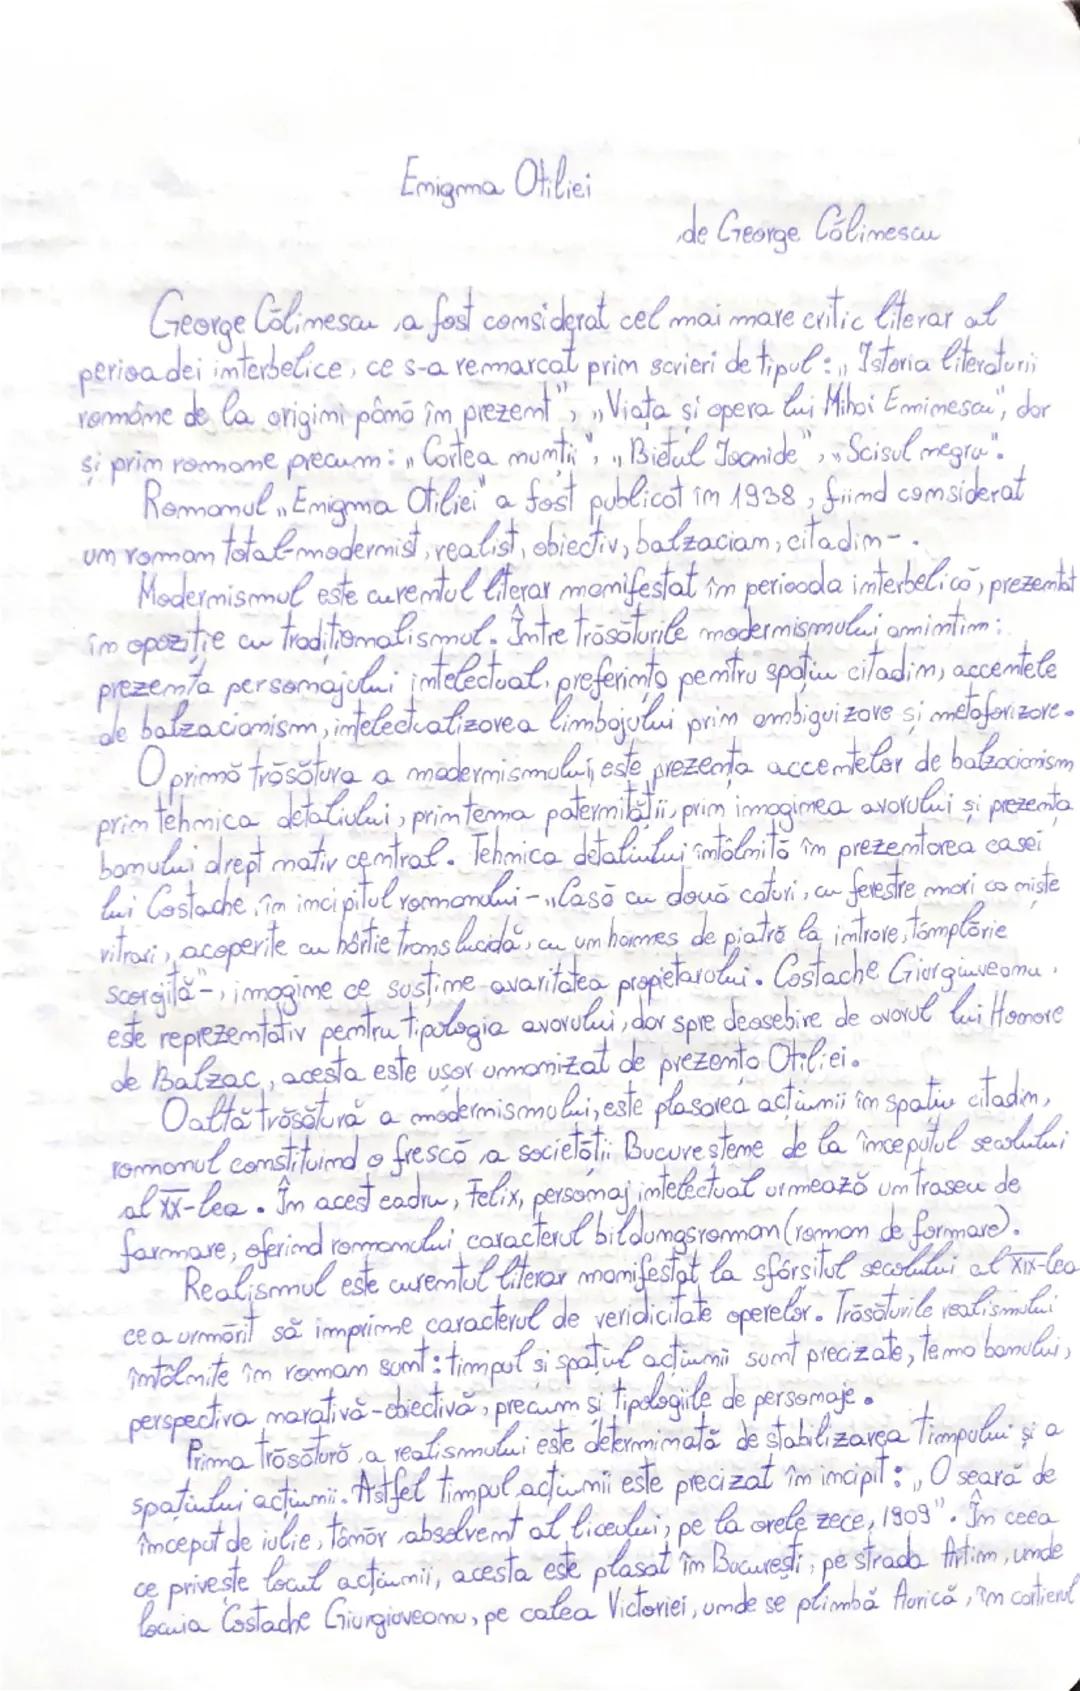 Enigma Otiliei
de George Călinescu
George Călinescu a fost considerat cel mai mare critic literar al
perioadei interbelice, ce s-a remarcat prin scrieri de tipul: „Istoria literaturii
române de la origini până în prezent", „Viața și opera lui Mihai Eminescu", dar
și prin romane precum: „Cartea nunții", „Bietul Ioanide", „Scinul negru".
Romanul „Enigma Otiliei" a fost publicat in 1938, fiind considerat
un roman total-modernist, realist, obiectiv, balzacian, citadin-.
Modernismul este curentul literar manifestat în perioada interbelică, prezentat
în opoziție cu traditionalismul. Între trăsăturile modernismului amintim:
prezența personajului intelectual, preferința pentru spațiu citadin, accentele
de balzacianism, intelectualizarea limbajului prin ambiguizare și metaforizare.
O primă trăsătura a modernismului, este prezența accentelor de balzacianism
prin tehnica detaliului, prin tema paternității, prin imaginea avarului și prezența
banului drept motiv central. Tehnica detaliului întâlnită în prezentarea casei
lui Costache, în incipitul romanului-„Casă cu două caturi, cu ferestre mari ca niște
vitrari, acoperite cu hârtie translucidă, cu un haimes de piatră la intrare, tâmplărie
scorgită"-, imagine ce susține avaritatea propietarului. Costache Giurgiuveanu,
este reprezentativ pentru tipologia avarului, dar spre deosebire de avarul lui Honore
de Balzac, acesta este ușor umanizat de prezența Otiliei.
O altă trăsătură a modernismului, este plasarea acțiunii în spatiu citadin,
romanul constituind o frescă a societății Bucureștene de la începutul secolului
al XX-lea. În acest cadru, Felix, personaj intelectual urmează un traseu de
formare, oferind romanului caracterul bildungsroman (roman de formare).
Realismul este curentul literar manifestat la sfârsitul secolului al XIX-lea
ce a urmărit să imprime caracterul de veridicitate operelor. Trăsăturile realismului
întâlnite în roman sunt: timpul și spațiul acțiunii sunt precizate, tema banului,
perspectiva narativă-obiectivă, precum și tipologiile de personaje.
Prima trăsătură a realismului este determinată de stabilizarea timpului și a
spațiului acțiunii. Astfel timpul acțiunii este precizat în incipit: „O seară de
început de iulie, tânăr absolvent al liceului, pe la orele zece, 1909". În ceea
ce privește locul acțiunii, acesta este plasat în București, pe strada Antim, unde
locuia Costache Giurgiuveanu, pe calea Victoriei, unde se plimbă Aurică, în cartierul